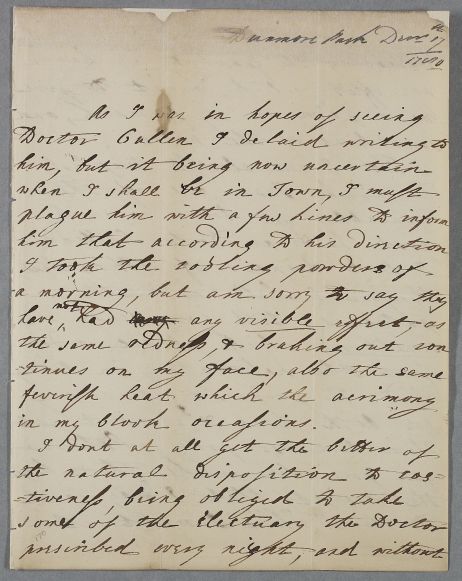 Dunmore Park Decr 17th
1780
As I was in hopes of seeing
Doctor Cullen I delaid writing to
him, but it being now uncertain
when I shall be in Town, I must
plague him with a few Lines to inform
him that according to his direction
I took the cooling powders of
a morning, but am sorry to say they
have, not had any visible effect as
the same redness & braking out con
tinues on my face, also the same
feverish heat which the acrimony
in my blook ocasions.
I dont at all get the better of
the natural disposition to cos=
=tiveness, being obliged to take
some of the Electuary the Doctor
prescribed every night, and without